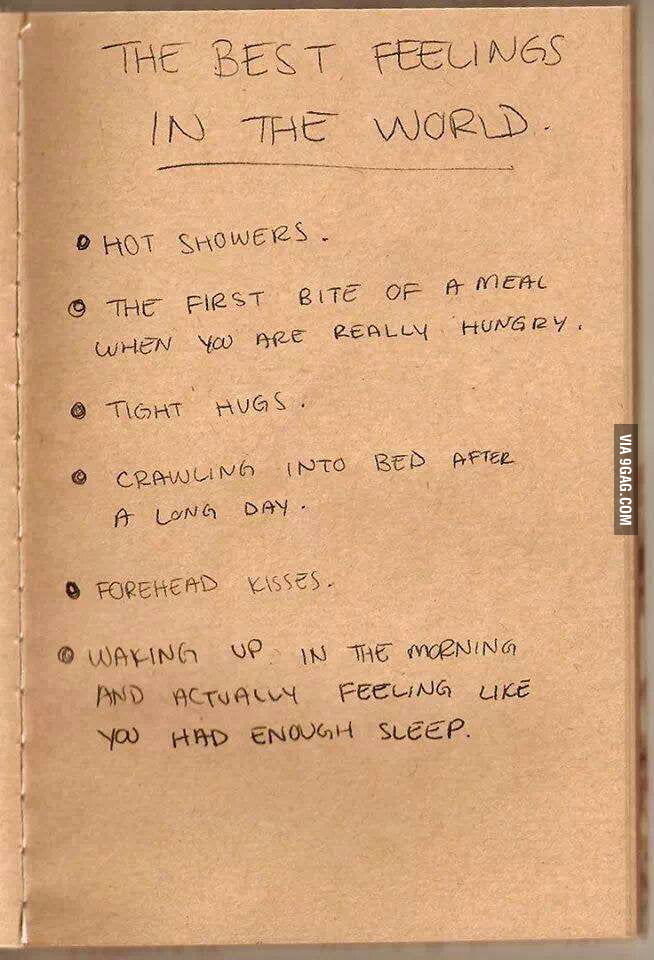 THE BEST FEELINGS
IN THE WORLD.
HOT SHOWERS.
THE FIRST BITE OF A MEAL
WHEN YOU ARE REALLY HUNGRY.
TIGHT HUGS.
CRAWLING INTO BED AFTER
A LONG DAY.
FOREHEAD KISSES.
WAKING UP IN THE MORNING
AND ACTUALLY FEELING LIKE
YOU HAD ENOUGH SLEEP.
VIA 9GAG.COM